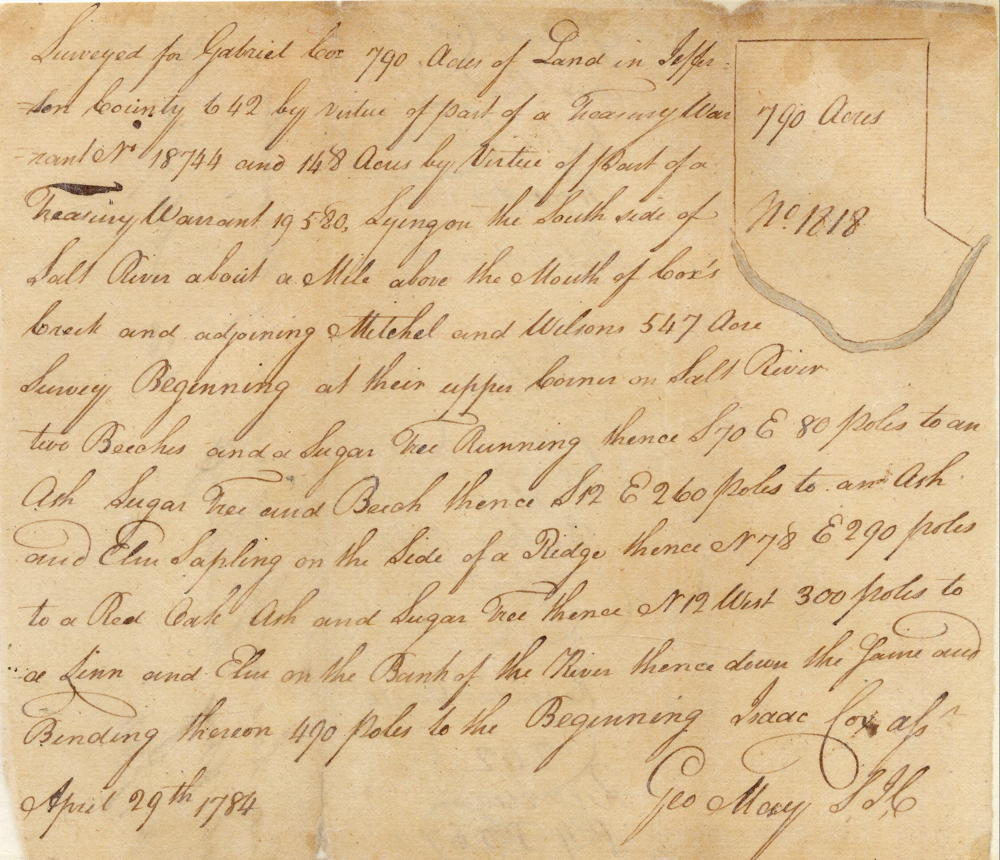 Surveyed for Gabriel Cox 790 Acres of Land in Jeffer=
=son County 642 by virtue of part of a Treasury War
=rant No 18744 and 148 Acres by Virtue of part of a
Treasury Warrant 19580, Lying on the South side of
Salt River about a Mile above the Mouth of Cox's
Creek and adjoining Mitchel and Wilsons 547 Acre
Survey Beginning at their upper Corner on Salt River
two Beeches and a Sugar Tree Running thence S 70 E 80 poles to an
Ash Sugar Tree and Beech thence S 12 E 260 poles to an Ash
and Elm Sapling on the Side of a Ridge thence N 78 E 290 poles
to a Red Oak Ash and Sugar Tree thence N 12 West 300 poles to
a Linn and Elm on the Bank of the River thence down the Same and
Binding thereon 490 poles to the Beginning Isaac Cox assn
April 29th 1784 Geo May S JC
790 Acres
No. 1818